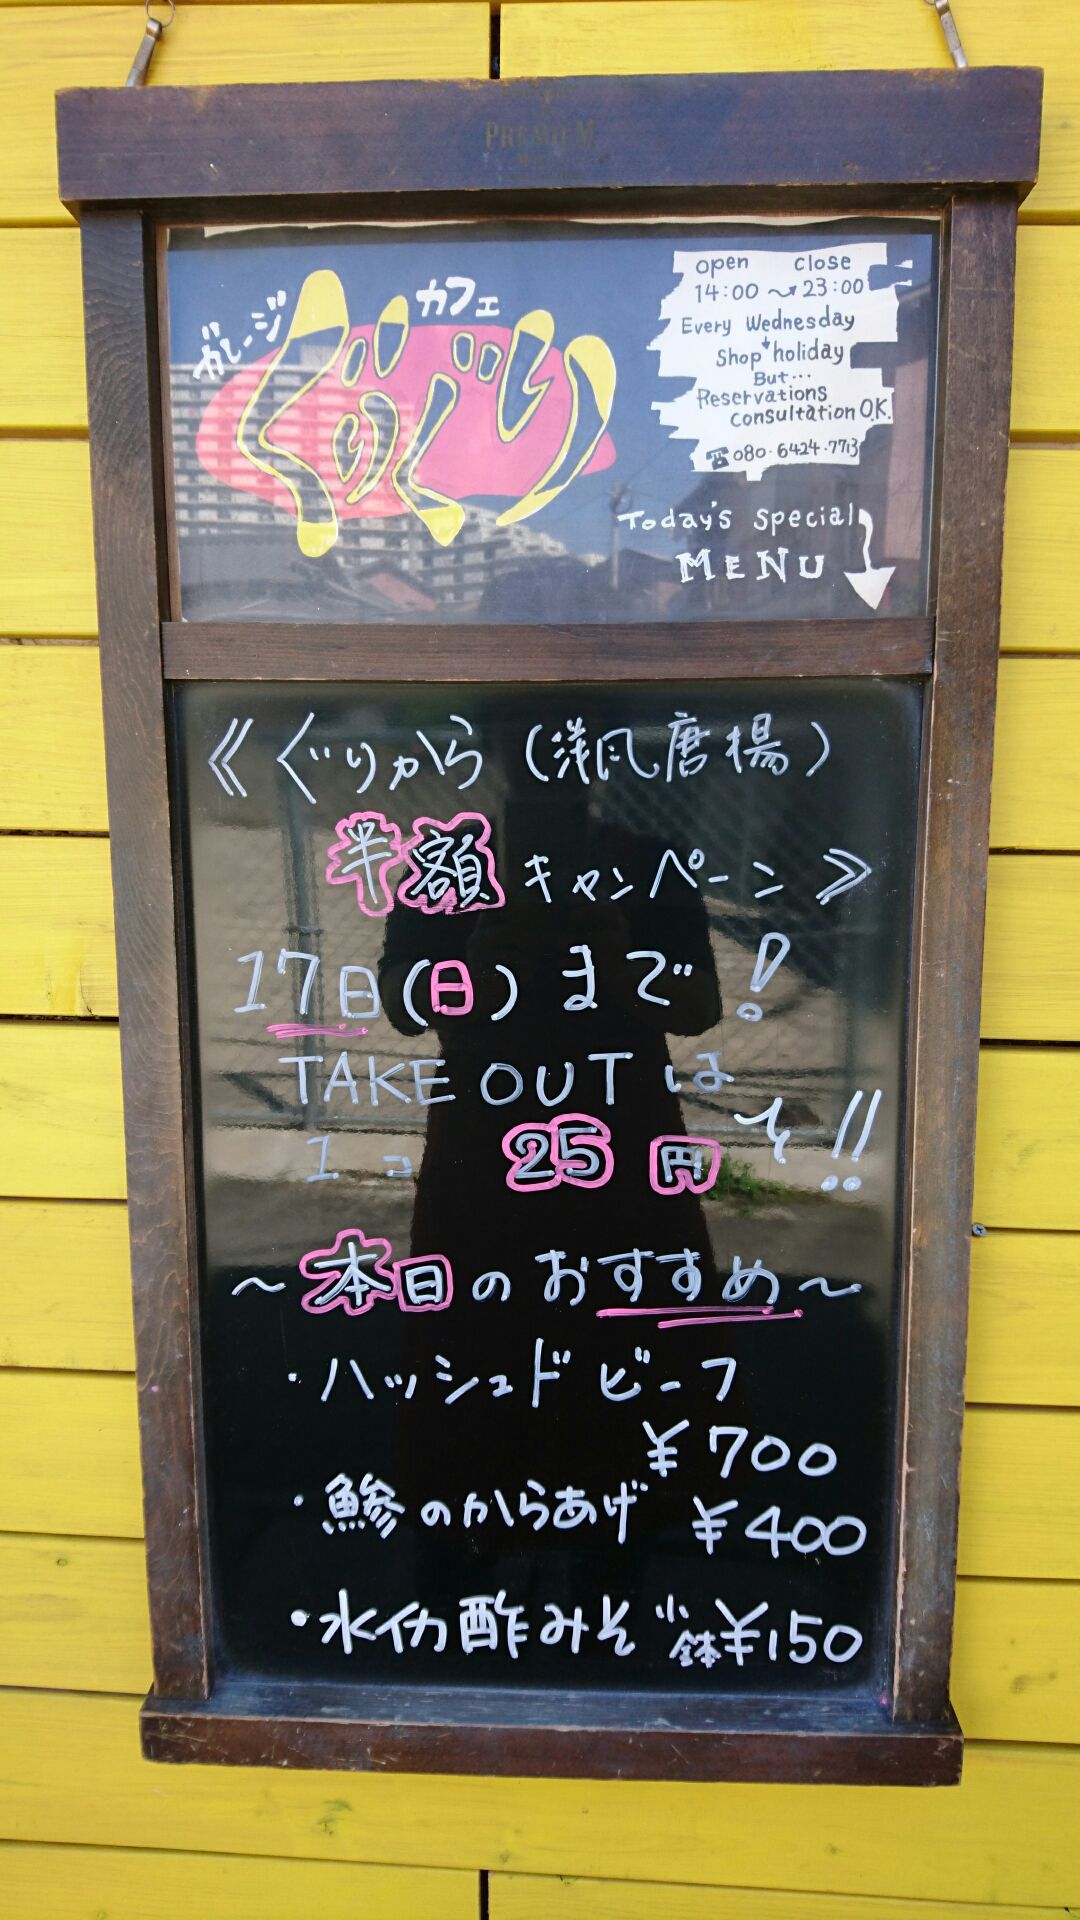 PREMIUM
ガレージ
カフェ
ぐりぐり
open close
14:00 〜 23:00
Every Wednesday
Shop holiday
But...
Reservations
consultation O.K.
☎080-6424-7713
Today's special
MENU
《ぐりから（洋風唐揚）
半額キャンペーン》
17日(日)まで!
TAKE OUTは
1コ 25円
そ!!
〜本日のおすすめ〜
・ハッシュドビーフ
¥700
・鯵のからあげ ¥400
・水イカ酢みそ 小鉢¥150